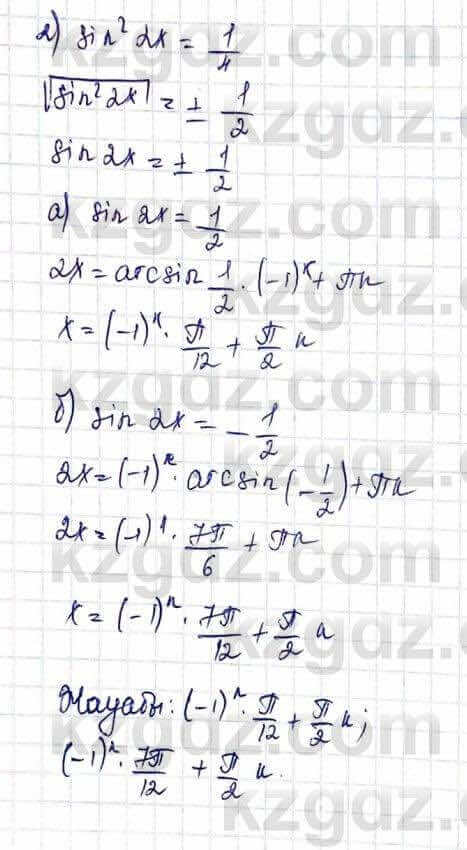 2) sin² 2x = 1/4
√sin² 2x = ± 1/2
sin 2x = ± 1/2
а) sin 2x = 1/2
2x = arcsin 1/2 · (-1)ᵏ + πn
x = (-1)ⁿ · π/12 + π/2 n
б) sin 2x = - 1/2
2x = (-1)ⁿ · arcsin (- 1/2) + πn
2x = (-1)¹ · 7π/6 + πn
x = (-1)ⁿ · 7π/12 + π/2 n
Жауабы: (-1)ⁿ · π/12 + π/2 n;
(-1)ⁿ · 7π/12 + π/2 n.
kzgdz.com
kzgdz.com
kzgdz.com
kzgdz.com
kzgdz.com
kzgdz.com
kzgdz.com
kzgdz.com